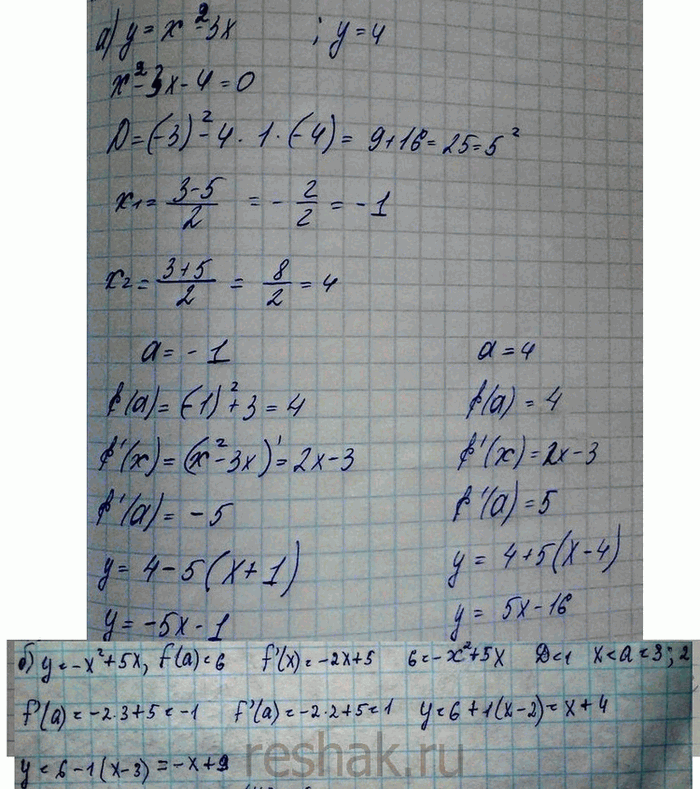 а) y = x² - 3x ; y = 4
x² - 3x - 4 = 0
D = (-3)² - 4 · 1 · (-4) = 9 + 16 = 25 = 5²
x₁ = (3-5)/2 = - 2/2 = -1
x₂ = (3+5)/2 = 8/2 = 4
a = -1 a = 4
f(a) = (-1)² + 3 = 4 f(a) = 4
f'(x) = (x² - 3x)' = 2x - 3 f'(x) = 2x - 3
f'(a) = -5 f'(a) = 5
y = 4 - 5(x + 1) y = 4 + 5(x - 4)
y = -5x - 1 y = 5x - 16
б) y = -x² + 5x, f(a) = 6 f'(x) = -2x + 5 6 = -x² + 5x D = 1 x = a = 3; 2
f'(a) = -2·3 + 5 = -1 f'(a) = -2·2 + 5 = 1 y = 6 + 1(x - 2) = x + 4
y = 6 - 1(x - 3) = -x + 9
reshak.ru